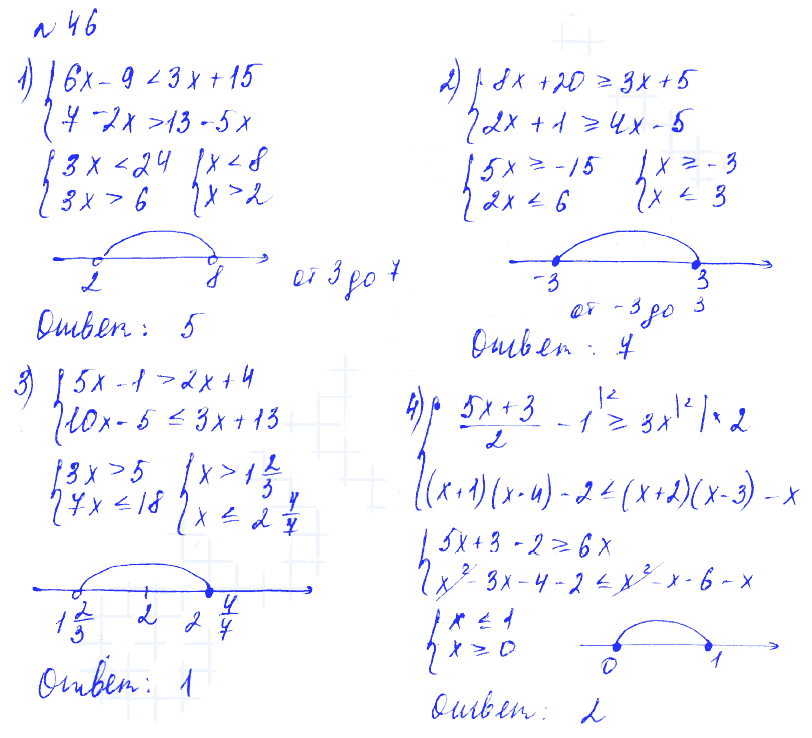 № 46
1) { 6x - 9 < 3x + 15
7 - 2x > 13 - 5x
{ 3x < 24 { x < 8
3x > 6 x > 2
2 8 от 3 до 7
Ответ: 5
2) { 8x + 20 ≥ 3x + 5
2x + 1 ≥ 4x - 5
{ 5x ≥ -15 { x ≥ -3
2x ≤ 6 x ≤ 3
-3 3
от -3 до 3
Ответ: 7
3) { 5x - 1 > 2x + 4
10x - 5 ≤ 3x + 13
{ 3x > 5 { x > 1 2/3
7x ≤ 18 x ≤ 2 4/7
1 2/3 2 2 4/7
Ответ: 1
4) { (5x + 3)/2 - 1 |² ≥ 3x |² | × 2
(x+1)(x-4) - 2 ≤ (x+2)(x-3) - x
{ 5x + 3 - 2 ≥ 6x
x² - 3x - 4 - 2 ≤ x² - x - 6 - x
{ x ≤ 1
x ≥ 0
0 1
Ответ: 2